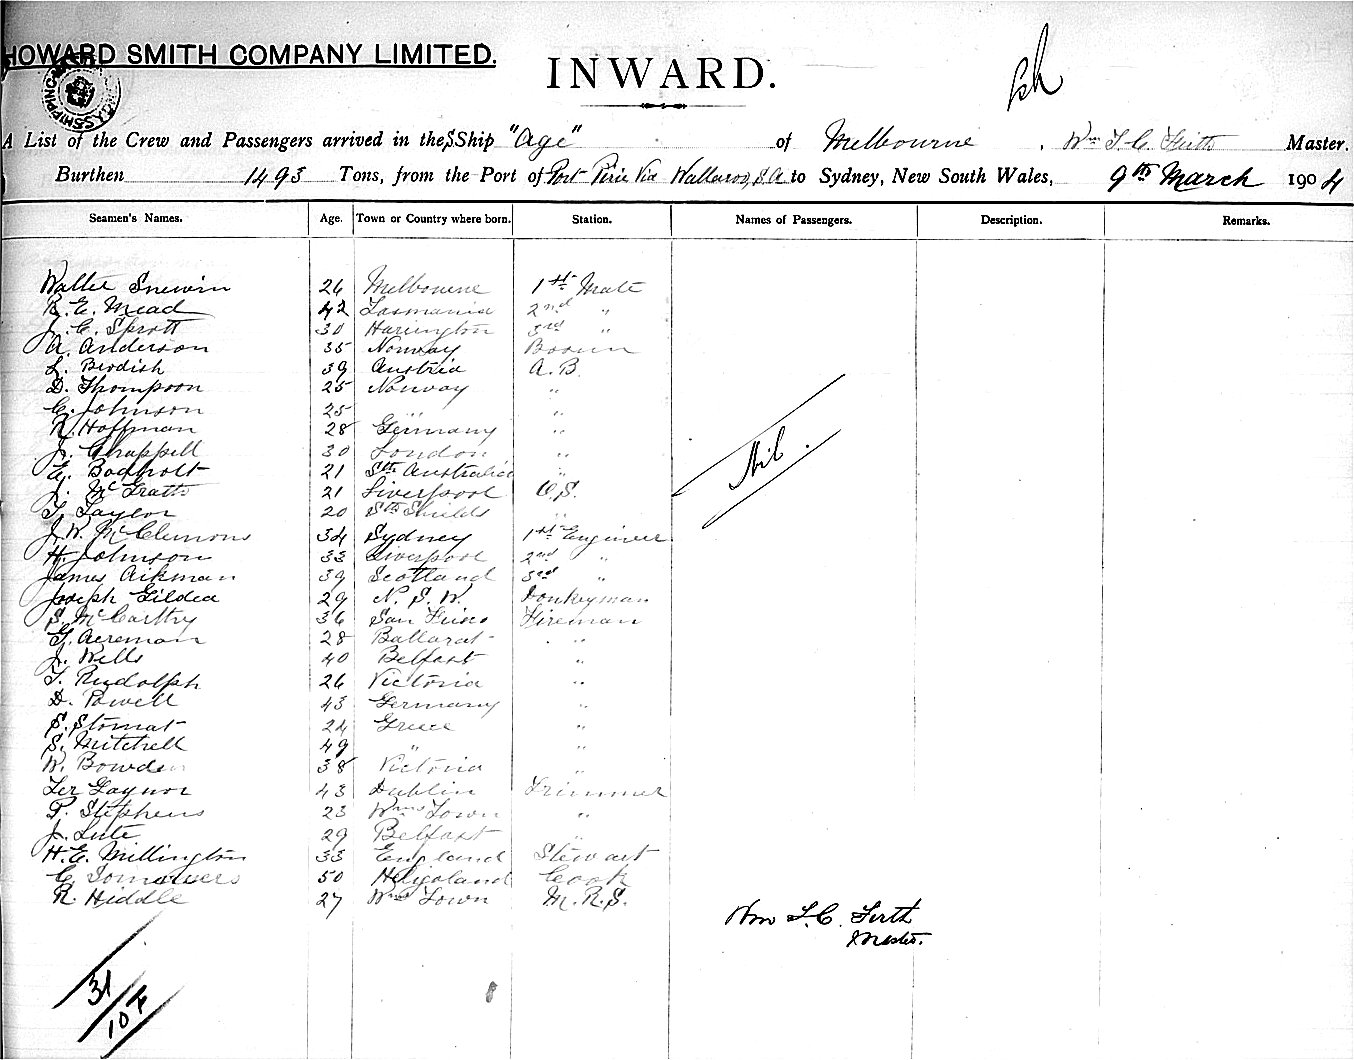 HOWARD SMITH COMPANY LIMITED.
INWARD.
A List of the Crew and Passengers arrived in the SShip "Age" of Melbourne, Wm T. C. Firth Master.
Burthen 1493 Tons, from the Port of Port Pirie Via Wallaroo, S.A to Sydney, New South Wales, 9th March 1904
Seamen's Names. Age. Town or Country where born. Station. Names of Passengers. Description. Remarks.
Walter Snewin 26 Melbourne 1st Mate
R. E. Mead 42 Tasmania 2nd "
J. C. Sprott 30 Harrington 3rd "
A. Anderson 35 Norway Bosun
L. Birdish 39 Austria A.B.
D. Thompson 25 Norway "
C. Johnson 25 " "
R. Hoffman 28 Germany "
J. Chappell 30 London "
E. Bodholt 21 Sth Australia "
J. McGrath 21 Liverpool O.S.
T. Taylor 20 Sth Shields "
J. W. McClemons 34 Sydney 1st Engineer
H. Johnson 33 Liverpool 2nd "
James Aikman 39 Scotland 3rd "
Joseph Gildea 29 N. S. W. Donkeyman
S. McCarthy 36 San Frisco Fireman
G. Acreman 28 Ballarat "
J. Wells 40 Belfast "
T. Rudolph 26 Victoria "
D. Powell 43 Germany "
S. Stomat 24 Greece "
S. Mitchell 49 " "
W. Bowden 38 Victoria "
Ter Gaynor 43 Dublin Trimmer
P. Stephens 23 Wms Town "
J. Lute 29 Belfast "
H. E. Millington 33 England Stewart
C. Somevers 50 Heligoland Cook
R. Hiddle 27 Wms Town M.R.S.
Nil.
Wm T. C. Firth
Master.
31
10 F